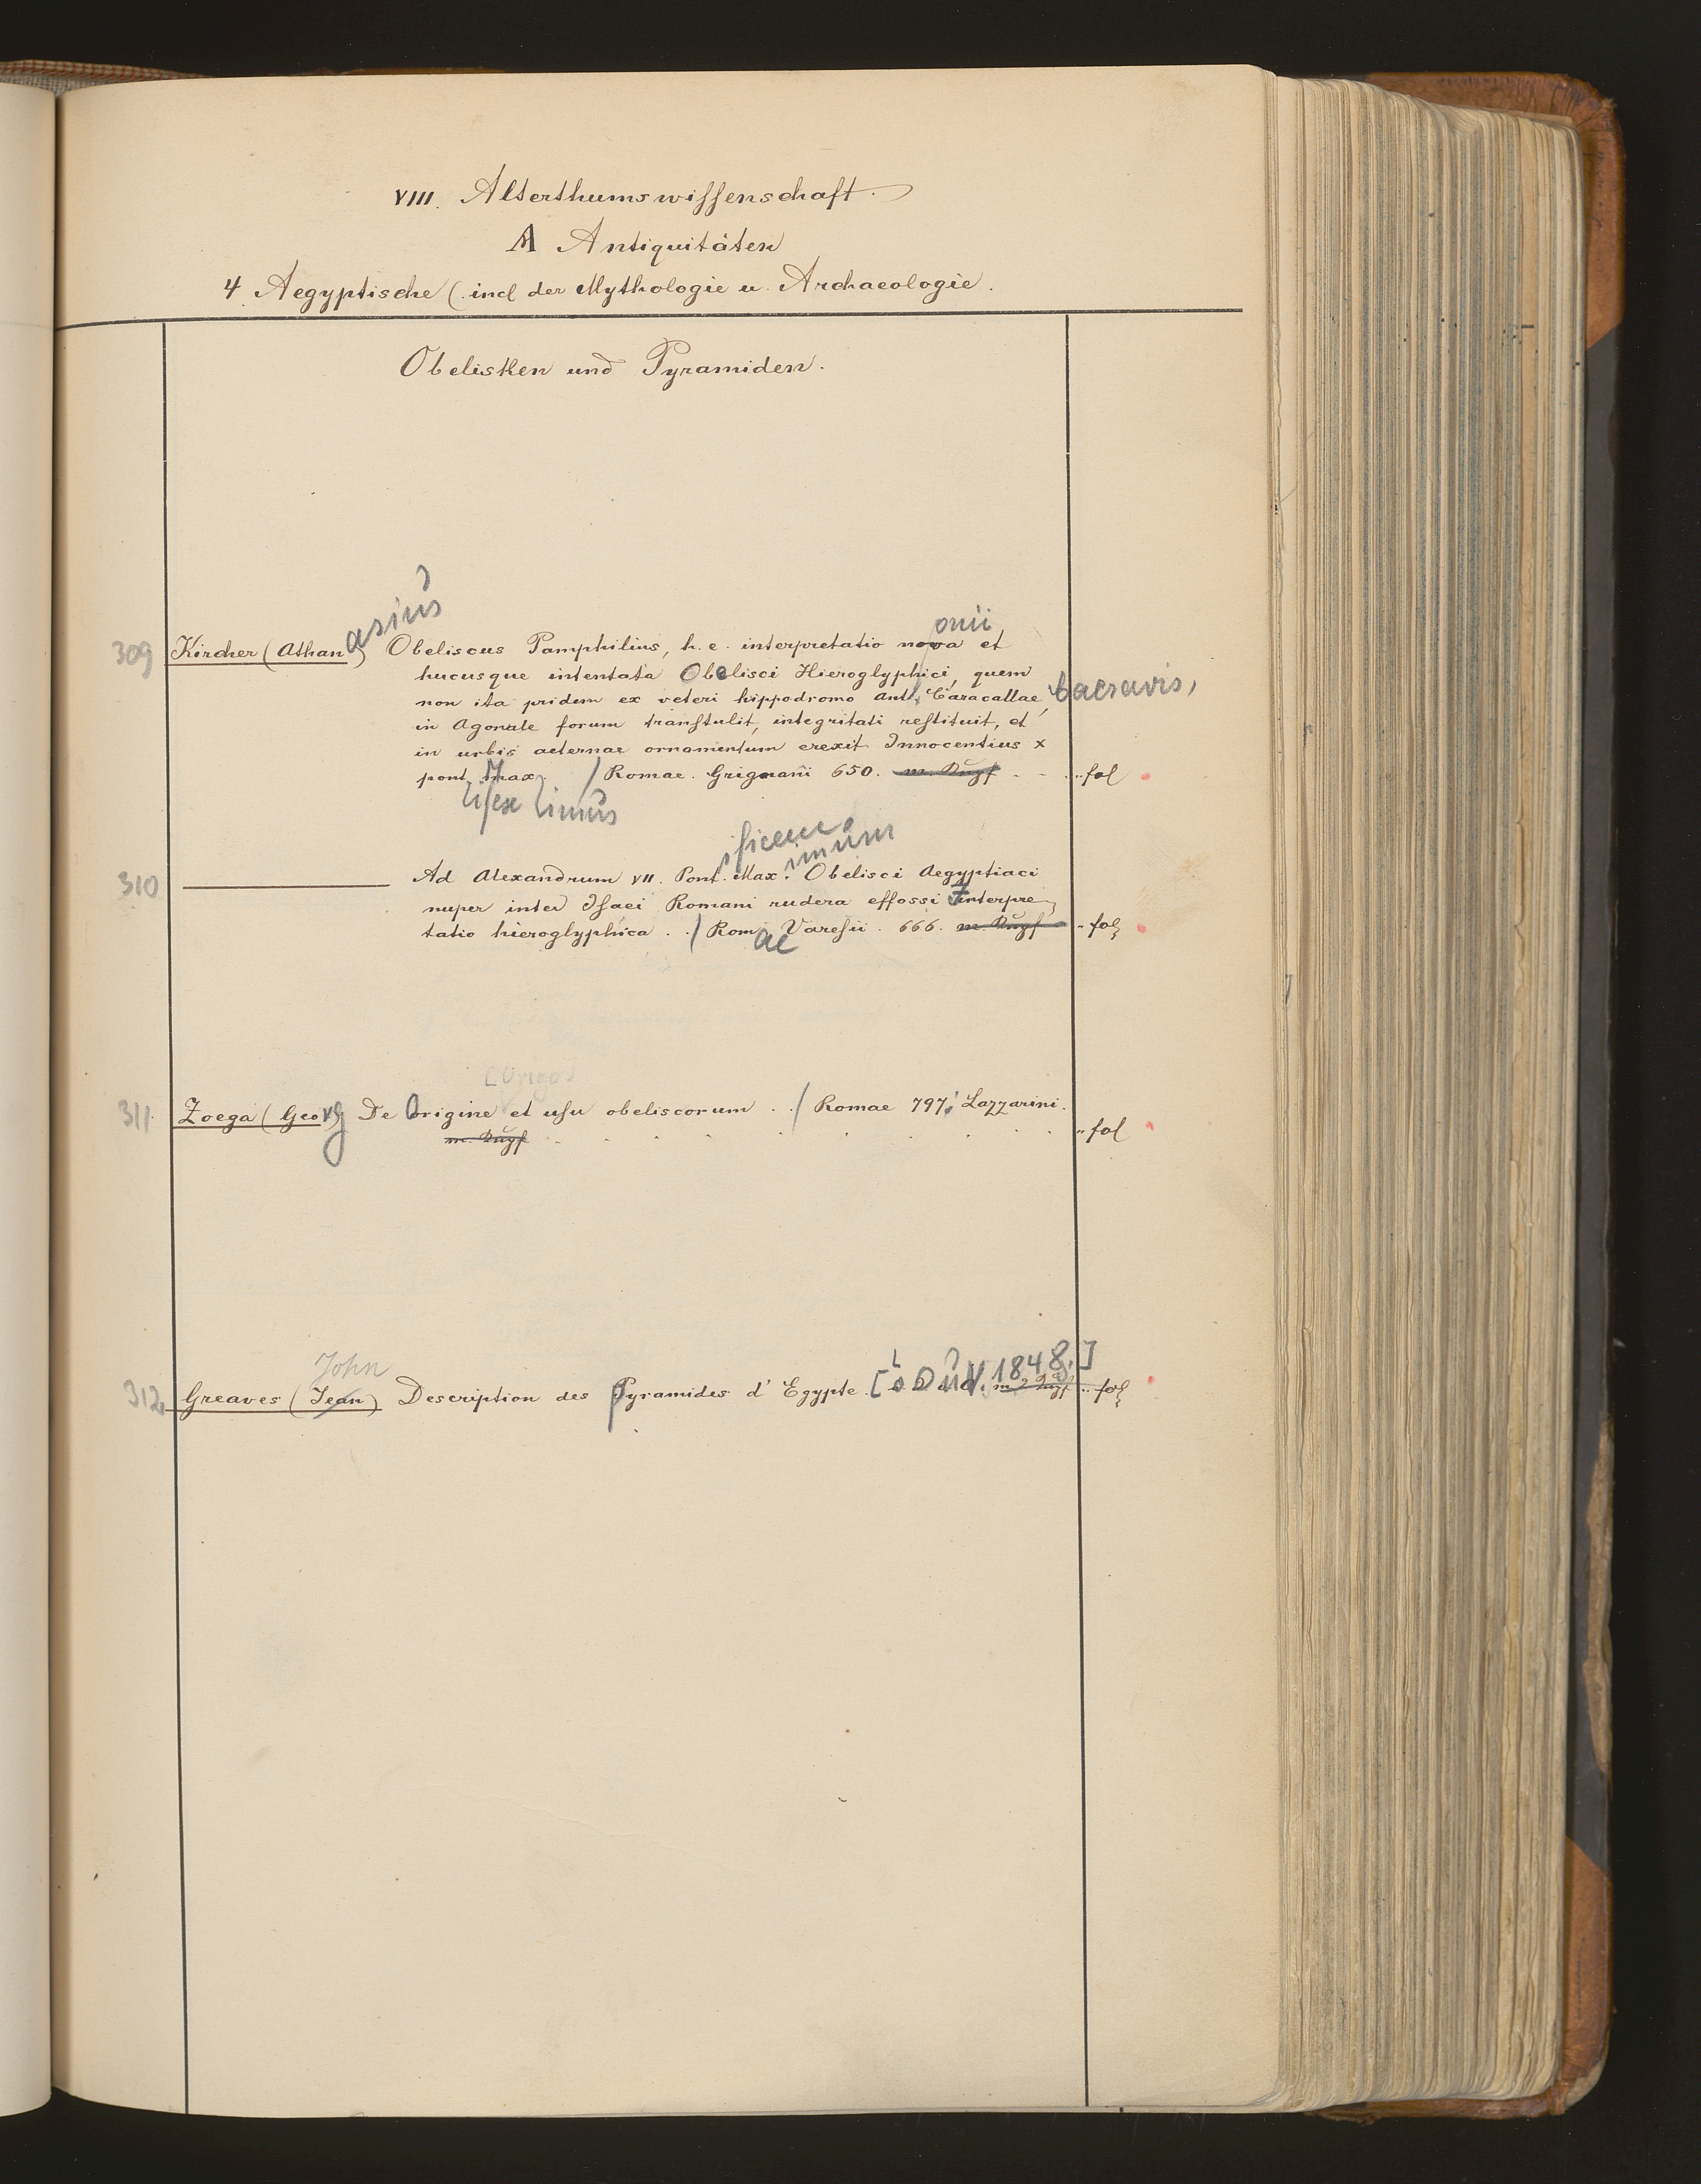 VIII. Alterthumswissenschaft.
A Antiquitäten
4 Aegyptische (incl der Mythologie u. Archaeologie.
Obelisken und Pyramiden.
asius
onii
309 Kircher (Athan) Obeliscus Pamphilius, h. e. interpretatio nova et
hucusque intentata Obelisci Hieroglyphici, quem
non ita pridem ex veteri hippodromo Ant. Caracallae, Caesaris,
in Agonale forum transtulit, integritati restituit, et
in urbis aeternae ornamentum erexit Innocentius X
pont Max / Romae. Grignani 650. m. Kupf . . .. fol
tifex imus
ificem imum
310 Ad Alexandrum VII. Pont. Max. Obelisci Aegyptiaci
nuper inter Isaei Romani rudera effossi Interpre
tatio hieroglyphica . . / Rom Varesii . 666. m. Kupf .. fol
ae
[Origo]
311 Zoega (Georg) De Origine et usu obeliscorum . . / Romae 797. Lazzarini.
m. Kupf . . . . . . . . .. fol
John
312 Greaves (Jean) Description des pyramides d'Egypte. 1848.] m 2 Kupf .. fol